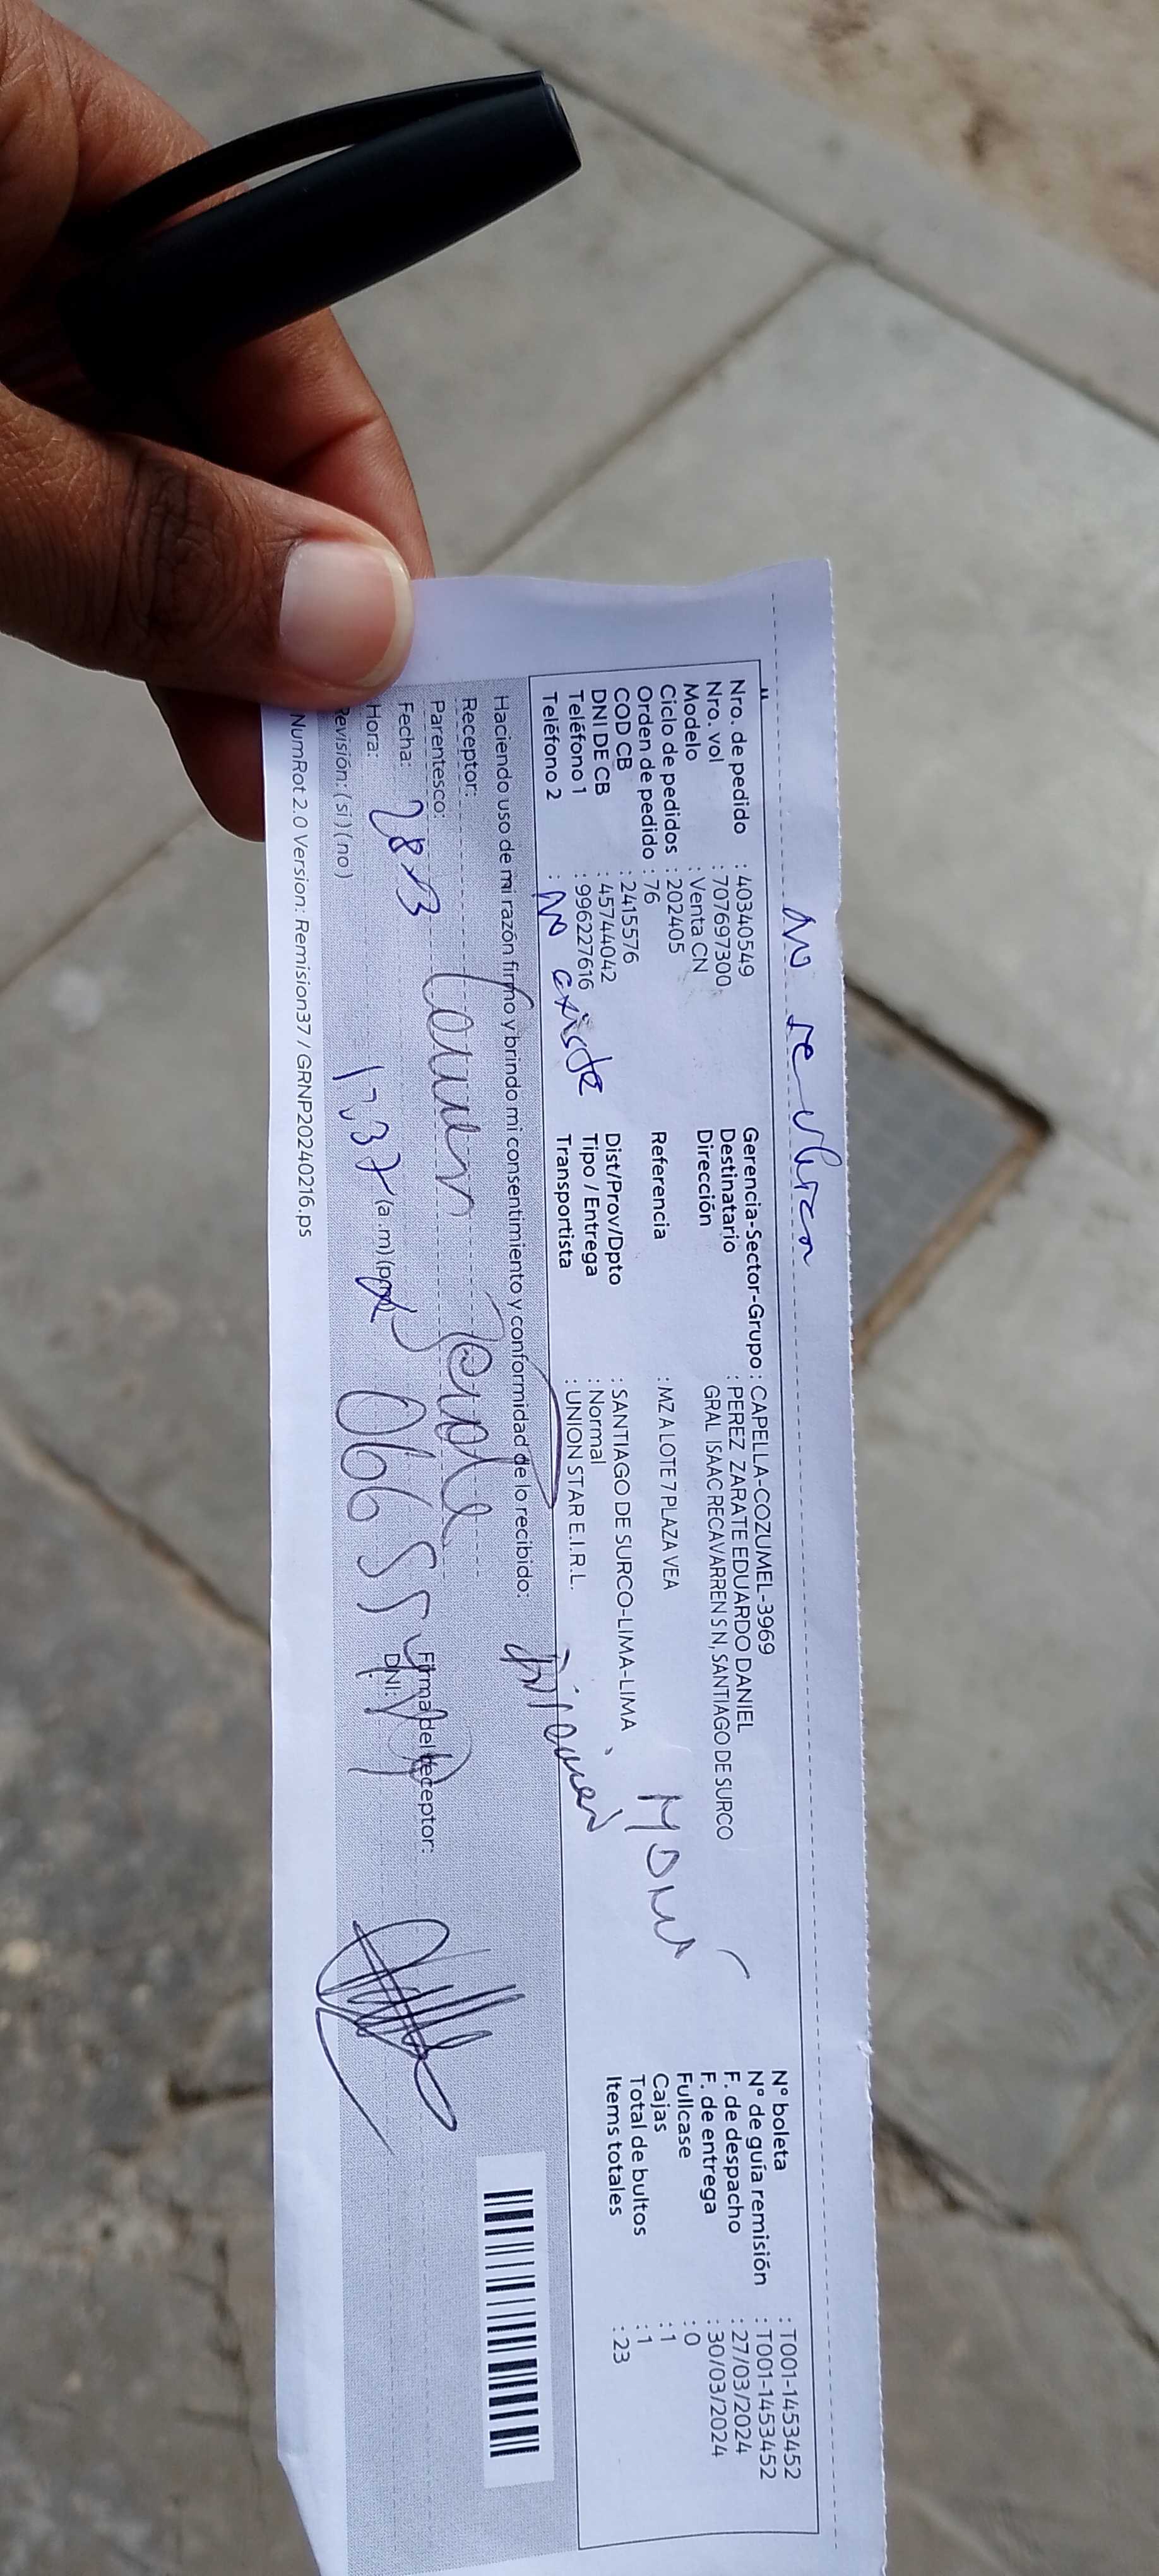 no se ubica
Nro. de pedido : 40340549
Nro. vol : 707697300
Modelo : Venta CN
Ciclo de pedidos : 202405
Orden de pedido : 76
COD CB : 2415576
DNI DE CB : 45744042
Teléfono 1 : 996227616
Teléfono 2 : no existe
Gerencia-Sector-Grupo : CAPELLA-COZUMEL-3969
Destinatario : PEREZ ZARATE EDUARDO DANIEL
Dirección GRAL ISAAC RECAVARREN S N, SANTIAGO DE SURCO
Referencia : MZ A LOTE 7 PLAZA VEA
Dist/Prov/Dpto : SANTIAGO DE SURCO-LIMA-LIMA
Tipo / Entrega : Normal
Transportista : UNION STAR E.I.R.L.
N° boleta : T001-1453452
N° de guía remisión : T001-1453452
F. de despacho : 27/03/2024
F. de entrega : 30/03/2024
Fullcase : 0
Cajas : 1
Total de bultos : 1
Items totales : 23
Haciendo uso de mi razón firmo y brindo mi consentimiento y conformidad de lo recibido:
Receptor:
Parentesco:
Fecha:
Hora: (a.m) (p.m)
Revisión: (si) (no)
Firma del receptor:
DNI:
NumRot 2.0 Version: Remision37 / GRNP20240216.ps